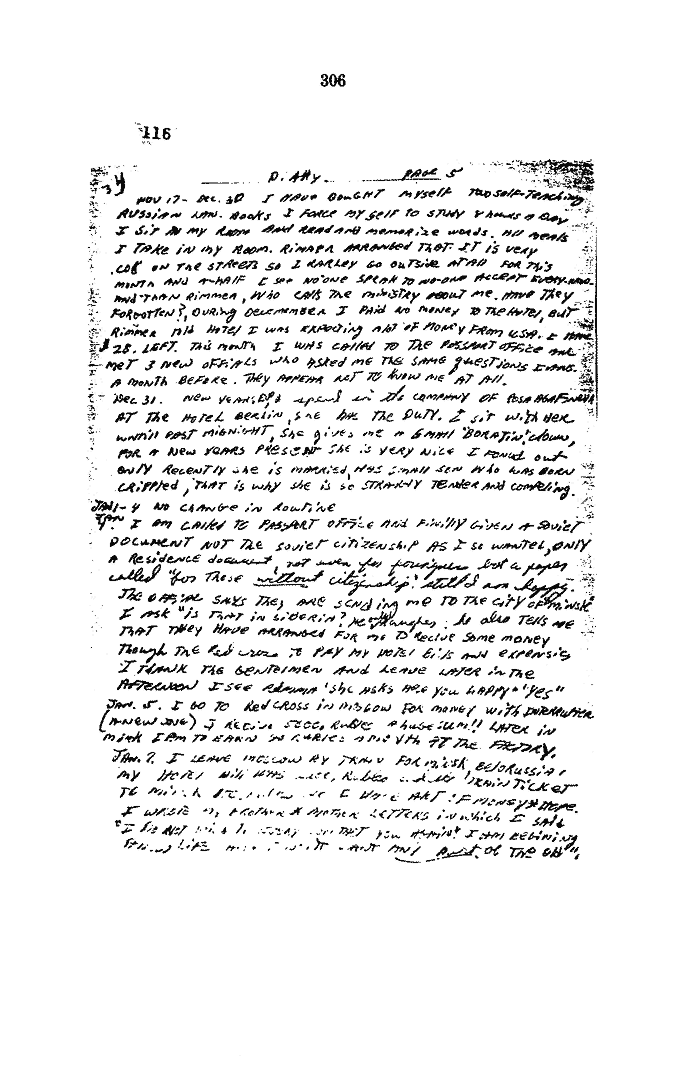 306
116
34 DiARy. PAGE 5
NOV 17- DEC. 30 I HAVE BOUGHT MYSELF TWO SELF-TEACHING
RUSSIAN LAN. BOOKS I FORCE MYSELF TO STUDY 8 HOURS A DAY
I SIT IN MY ROOM AND READ AND MEMORIZE WORDS. All MEALS
I TAKE IN MY ROOM. RIMMER ARRANGED THAT. IT IS VERY
COlD ON THE STREETS SO I RARLEY GO OUTSIDE AT All FOR THIS
MONTH AND A-HALF I SEE NO ONE SPEAK TO NO-ONE ACCEPT EVERY-NOW-
AND-THAN RIMMER, WHO CALLS THE MINISTRY ABOUT ME. HAVE THEY
FORGOTTEN?, DURING DECEMEMBER I PAID NO MONEY TO THE HOTEL, BUT
RIMMER TOLD HOTEL I WAS EXPECTING A LOT OF MONEY FROM USA. I HAVE
$28. LEFT. THIS MONTH I WAS CALLED TO THE PASSPORT OFFICE AND
MET 3 NEW OFFIALS WHO ASKED ME THE SAME QUESTIONS I ANS.
A MONTH BEFORE. THEY APPEAR NOT TO KNOW ME AT All.
DEC 31. NEW YEARS, spend in the COMPANY OF ROSA AGAFONAVA
AT THE HOTEL BERLIN, SHE THE DUTY. I SIT WITH HER
UNTILL PAST MIDNIGHT, SHE gives ME A SMALL 'BORATIN', CLOWN,
FOR A NEW YEARS PRESENT SHE IS VERY NICE I FOUND OUT
ONLY RECENTLY SHE IS MARRIED, HAS SMALL SON WHO WAS BORN
CRIPPLED, THAT IS WHY SHE IS SO STRANGLY TENDER AND COMPELING.
JAN 1-4 NO CHANGE IN ROUTINE
I AM CALLED TO PASSPORT OFFICE AND FINILLY GIVEN A SOVIET
DOCUMENT NOT THE SOVIET CITIZENSHIP AS I SO WANTED, ONLY
A Residence document, not even for foringners but a paper
called "for those without citizenship." still I am happy.
THE OFFIAL SAYS THEY ARE SENDING ME TO THE CITY OF "MINSK"
I ASK "IS THAT IN SIBERIA? He laughes. he also TELLS ME
THAT THEY HAVE ARRANGED FOR ME TO RECIVE SOME MONEY
THOUGH THE RED CROSS TO PAY MY HOTEL BILLS AND EXPENSIS
I THANK THE GENTELMEN AND LEAVE LATER IN THE
AFTERNOON I SEE RIMMA "SHE ASKS ARE YOU HAPPY" "YES"
JAN. 5. I GO TO RED CROSS IN MOSCOW FOR MONEY WITH INTERRUPTER
(A NEW ONE) I RECIVE 5000. RUBLES A HUGE SUM!! LATER IN
MINSK I AM TO EARN RUBLES A MONTH AT THE FACTORY.
JAN. 7. I LEAVE MOSCOW BY TRAIN FOR MINSK, BELORUSSIA.
MY HOTEL BILL WAS RUBLES TRAIN TICKET
TO MINSK SO I HAVE A LOT OF MONEY & HOPE.
I WROTE MY BROTHER & MOTHER LETTERS IN WHICH I SAID
"I DO NOT WISH TO EVERY CONTACT YOU AGAIN." I AM BEGINING
LIFE AND I DON'T WANT ANY PART OF THE OLD".